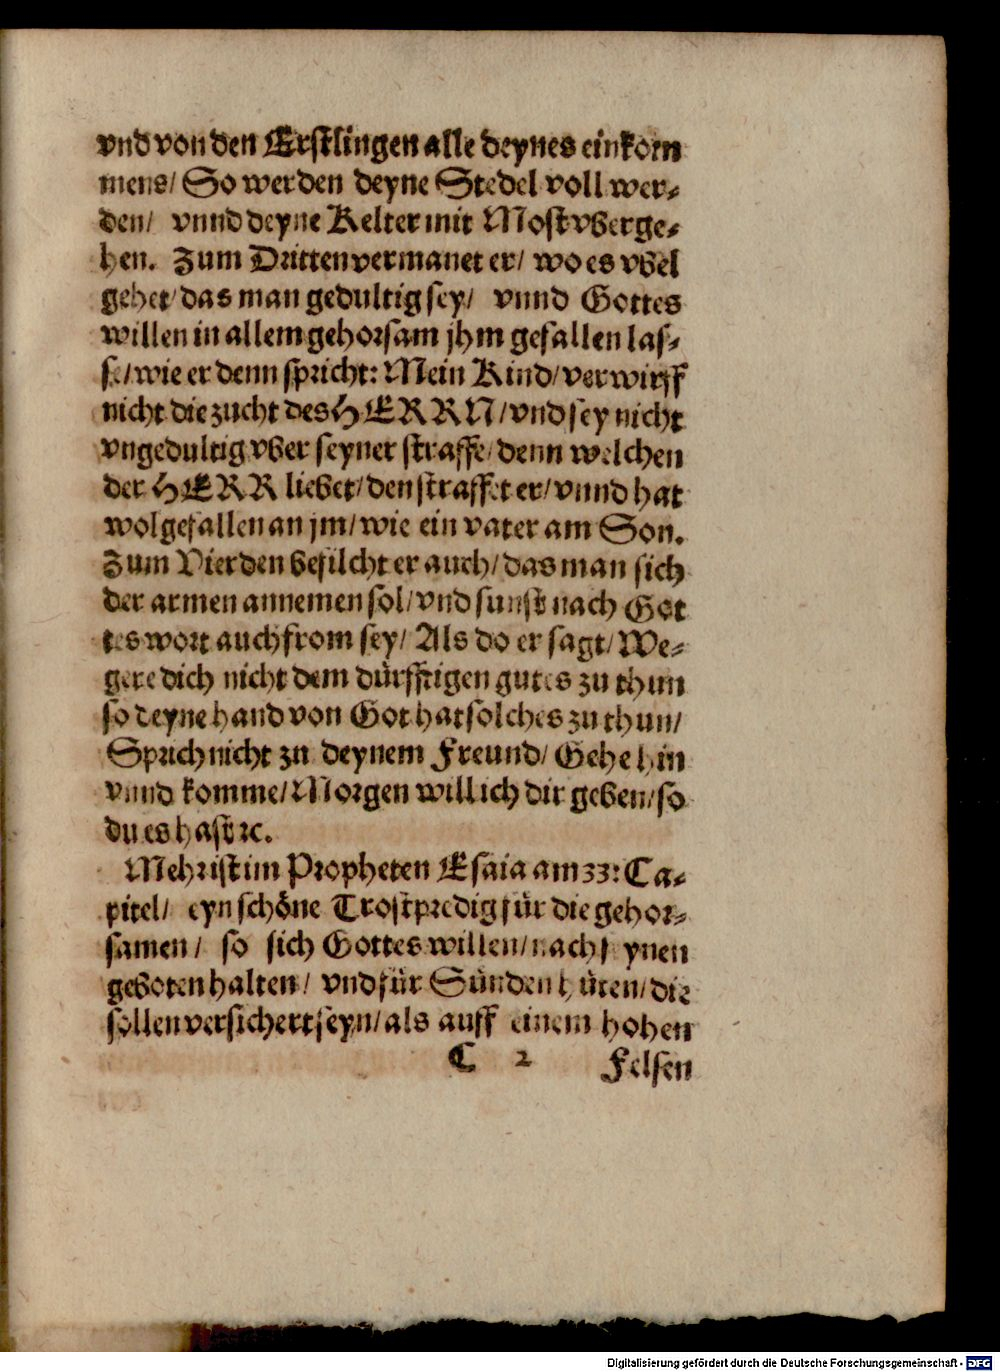 vnd von den Erstlingen alle deynes einkom
mens/ So werden deyne Stedel voll wer-
den/ vnnd deyne Kelter mit Most vberge-
hen. Zum Dritten vermanet er/ wo es vbel
gehet/ das man gedultig sey/ vnnd Gottes
willen in allem gehorsam jhm gefallen las-
se/ wie er denn spricht: Mein Kind/ verwirff
nicht die zucht des HERRN/ vnd sey nicht
vngedultig vber seyner straffe/ denn welchen
der HERR liebet/ den straffet er/ vnnd hat
wolgefallen an jm/ wie ein vater am Son.
Zum Vierden befilcht er auch/ das man sich
der armen annemen sol/ vnd sunst nach Got
tes wort auch from sey/ Als do er sagt/ We-
gere dich nicht dem dürfftigen gutes zu thun
so deyne hand von Got hat solches zu thun/
Sprich nicht zu deynem Freund/ Gehe hin
vnnd komme/ Morgen will ich dir geben/ so
du es hast ꝛc.
Mehr ist im Propheten Esaia am 33: Ca-
pitel/ eyn schöne Trostpredig für die gehor-
samen/ so sich Gottes willen/ nach seynen
geboten halten/ vnd für Sünden hüten/ die
sollen versichert seyn/ als auff einem hohen
C 2 Felsen
Digitalisierung gefördert durch die Deutsche Forschungsgemeinschaft - DFG